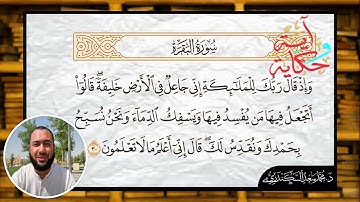 آية
و
حكاية
سُورَةُ البَقَرَةِ
وَإِذْ قَالَ رَبُّكَ لِلْمَلَٰٓئِكَةِ إِنِّي جَاعِلٌ فِي ٱلْأَرْضِ خَلِيفَةً ۖ قَالُوٓا۟
أَتَجْعَلُ فِيهَا مَن يُفْسِدُ فِيهَا وَيَسْفِكُ ٱلدِّمَآءَ وَنَحْنُ نُسَبِّحُ
بِحَمْدِكَ وَنُقَدِّسُ لَكَ ۖ قَالَ إِنِّيٓ أَعْلَمُ مَا لَا تَعْلَمُونَ ٣٠
د. محمد سعد السكندري